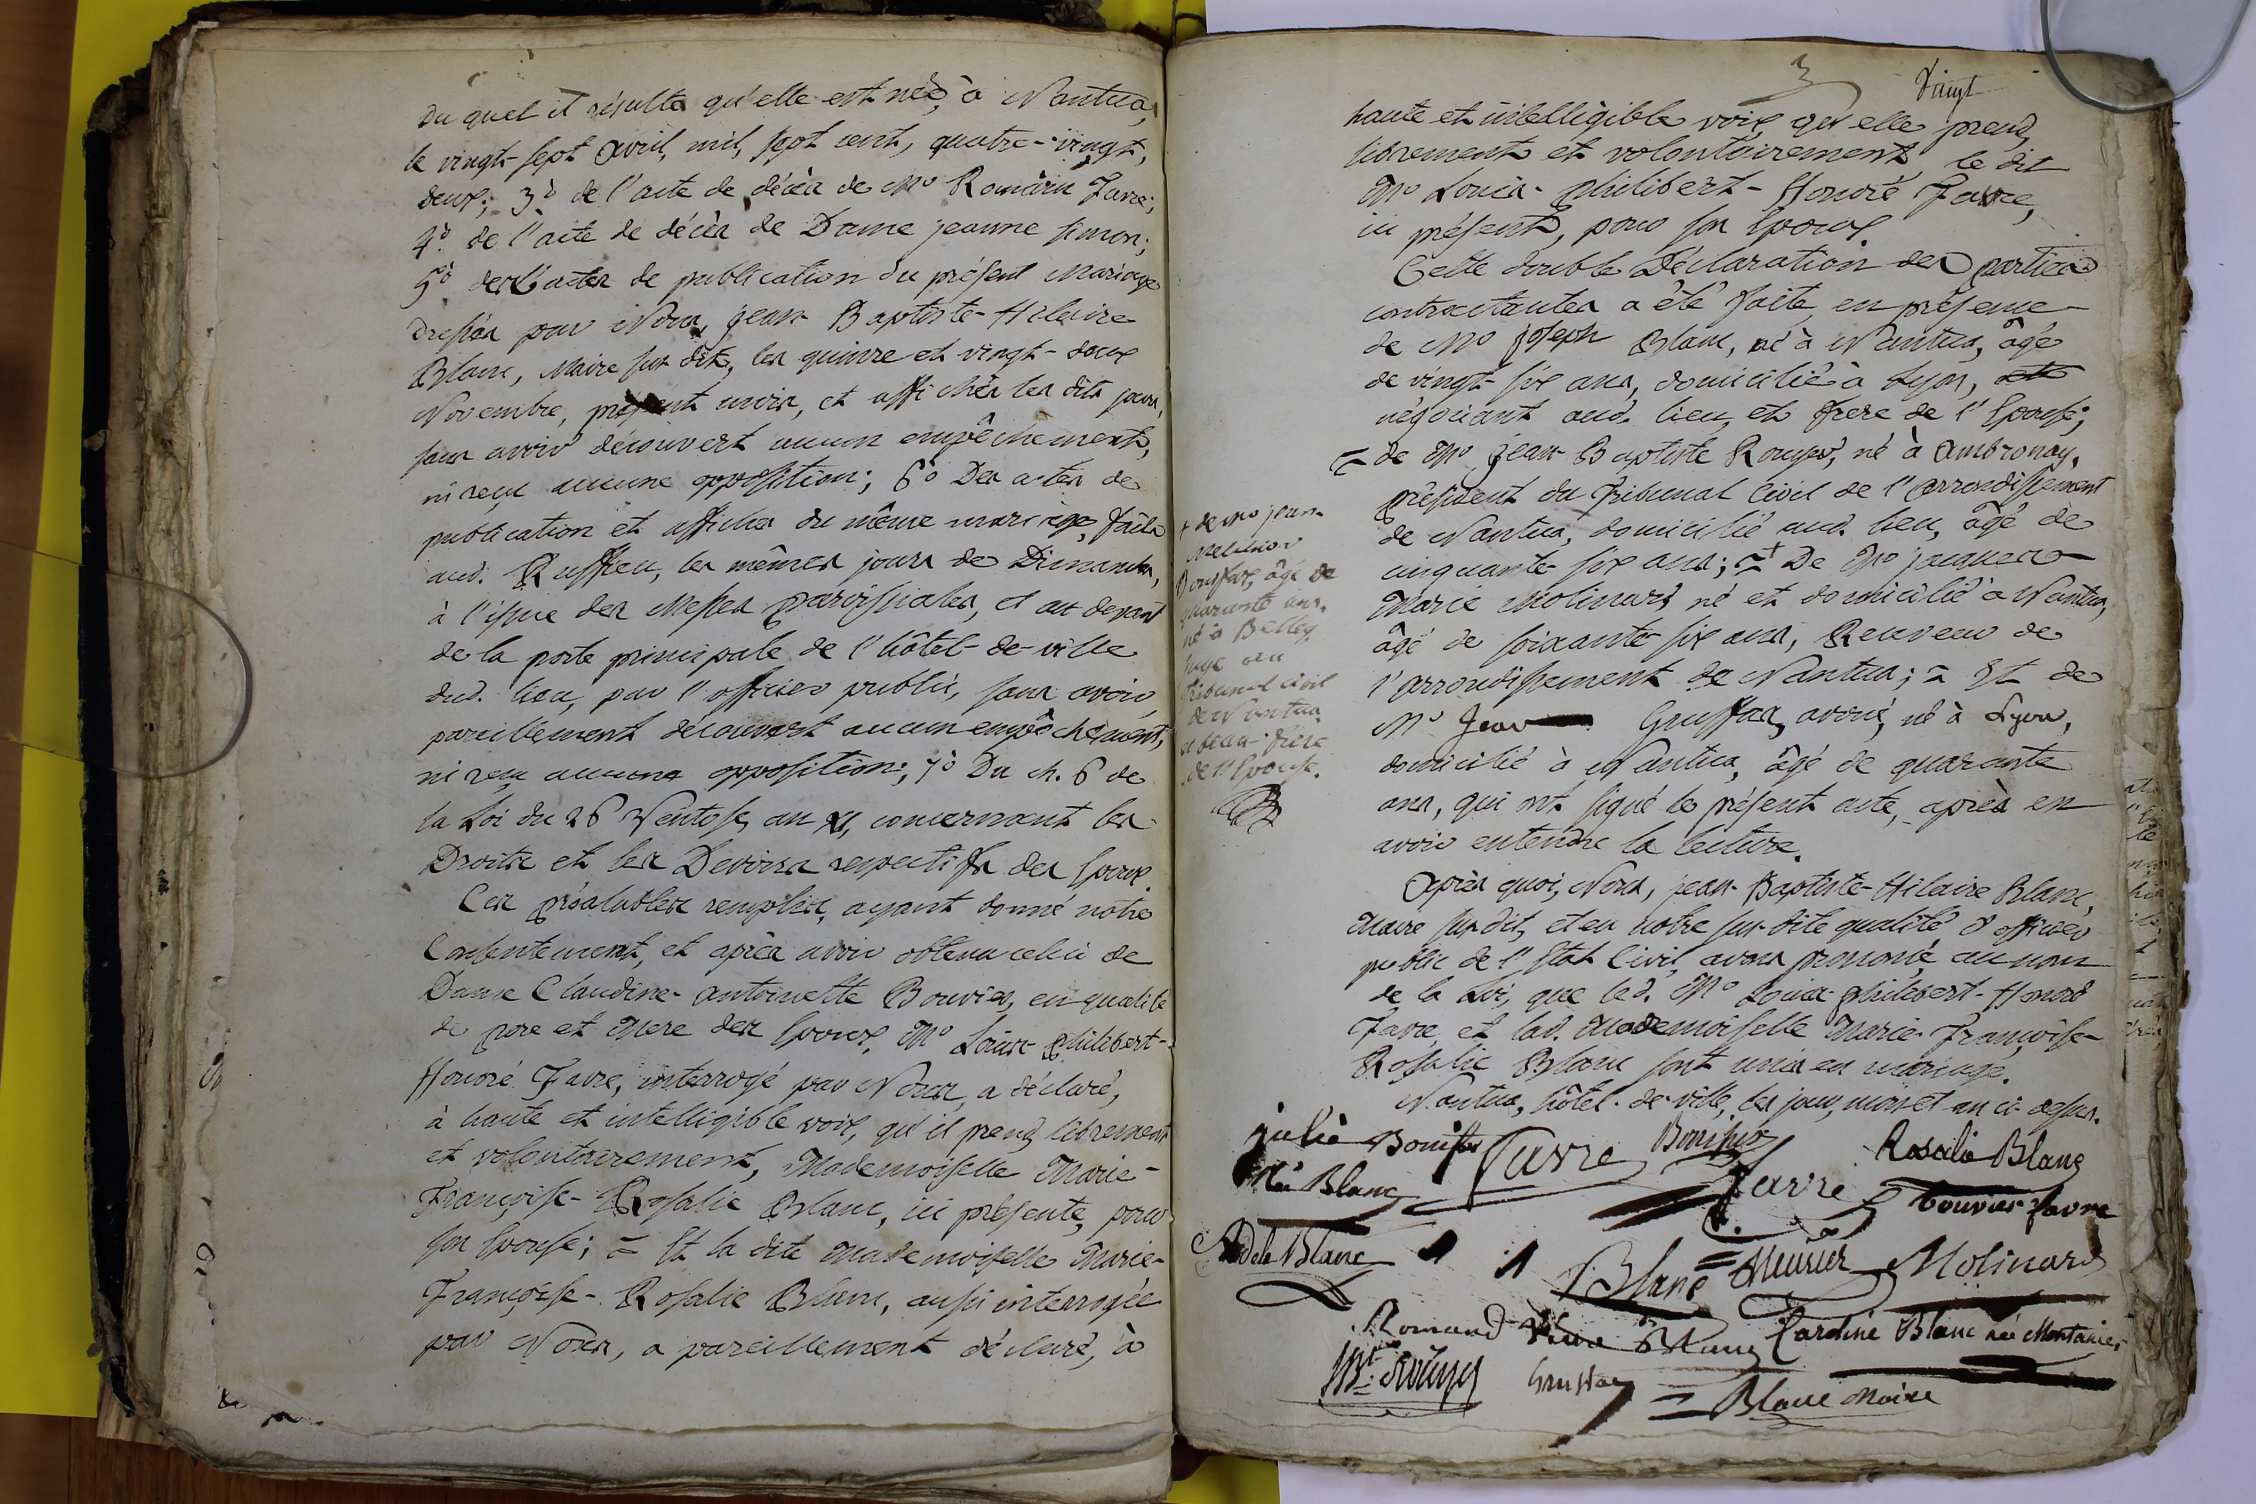 du quel il résulte qu'elle est née, à Nantua,
le vingt-sept avril, mil, sept cent, quatre-vingt,
deux; 3º de l'acte de décès de Mr Romain Favre;
4º de l'acte de décès de Dame jeanne simon;
5º des actes de publication du présent Mariage
dressés par Nous, jean-Baptiste-Hilaire
Blanc, Maire sus dit, les quinze et vingt-deux
Novembre, présent mois, et affichés les dits jours,
sans avoir découvert aucun empêchement,
ni reçu aucune opposition; 6º Des actes de
publication et affiches du même mariage, faits
aud. Ruffieu, les mêmes jours de Dimanche,
à l'issue des Messes paroissiales, et au devant
de la porte principale de l'hôtel-de-ville
dud. lieu, par l'officier public, sans avoir
pareillement découvert aucun empêchement,
ni reçu aucune opposition; 7º Du ch. 6 de
la Loi du 26 Ventose, an XI, concernant les
Droits et les Devoirs respectifs des Epoux.
Ces préalables remplis, ayant donné notre
Consentement, et après avoir obtenu celui de
Dame Claudine-antoinette Bouvier, en qualité
de pere et Mere des Epoux, Mr Louis-philibert-
Honoré Favre, interrogé par Nous, a déclaré,
à haute et intelligible voix, qu'il prend librement
et volontairement, Mademoiselle Marie-
Françoise-Rosalie Blanc, ici présente, pour
son Epouse; = Et la dite Mademoiselle Marie-
Françoise-Rosalie Blanc, aussi interrogée
par Nous, a pareillement déclaré, à
3 Vingt
haute et intelligible voix, qu'elle prend,
librement et volontairement, le dit
Mr Louis-philibert-Honoré Favre,
ici présent, pour son Epoux.
Cette double Déclaration des parties
contractantes a été faite, en présence
de Mr joseph Blanc, né à Nantua, âgé
de vingt-six ans, domicilié à Lyon,
négociant aud. lieu, et frere de l'Epouse;
= de Mr jean-Baptiste Rouyer, né à ambronay,
président du Tribunal Civil de l'arrondissement
de Nantua, domicilié aud. lieu, âgé de
cinquante-six ans; = + De Mr jacques-
Marie Molinard, né et domicilié à Nantua,
âgé de soixante-six ans, Receveur de
l'arrondissement de Nantua; = Et de
Mr Jean Gruffaz, avoué, né à Lyon,
domicilié à Nantua, âgé de quarante
ans, qui ont signé le présent acte, après en
avoir entendre la lecture.
Après quoi, Nous, jean-Baptiste-Hilaire Blanc,
Maire sus dit, et en notre sus-dite qualité d'officier
public de l'Etat Civil, avons prononcé, au nom
de la Loi, que led. Mr Louis-philibert-Honoré
Favre, et lad. Mademoiselle Marie-Françoise-
Rosalie Blanc sont unis en mariage.
Nantua, hôtel-de-ville, les jour, mois et an ci-dessus.
+ de Mr jean-
Melchior
âgé de
quarante ans,
né à Belley,
juge au
Tribunal Civil
de Nantua,
et beau-frere
de l'Epouse.
julie
née Blanc
Favre
Favre
Rosalie Blanc
bouvier favre
Adele Blanc
Blanc
Meunier
Molinard
Romand
Blanc
Caroline Blanc née Montanier
JBte Rouyer
Gruffaz
Blanc Maire